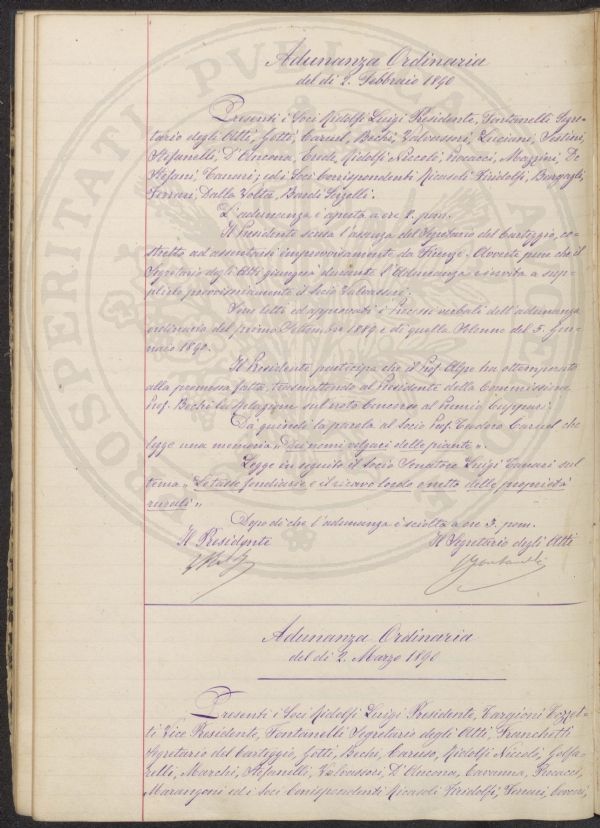 Adunanza Ordinaria
del dì 2. Febbraio 1890
Presenti i Soci Ridolfi Luigi Presidente, Fontanelli Segre-
tario degli Atti, Gotti, Caruel, Bechi, Valvassori, Luciani, Sestini,
Stefanelli, D'Ancona, Erede, Ridolfi Niccolò, Pucacci, Mazzini, De
Stefani, Tanari, ed i Soci Corrispondenti Ricasoli Firidolfi, Bargagli,
Ferrari, Dalla Volta, Bardi Serzelli.
L'adunanza è aperta a ore 1. pom.
Il Presidente scusa l'assenza del Segretario del Carteggio, co-
stretto ad assentarsi improvvisamente da Firenze. Avverte pure che il
Segretario degli Atti giungerà durante l'Adunanza e invita a sup-
plirlo provvisoriamente il Socio Valvassori.
Son letti ed approvati i Processi verbali dell'adunanza
ordinaria del primo Settembre 1889 e di quella Solenne del 5. Gen-
naio 1890.
Il Presidente partecipa che il Prof. Alpe ha ottemperato
alla promessa fatta, trasmettendo al Presidente della Commissione
Prof. Bechi la Relazione sul noto Concorso al Premio Cuppari.
Dà quindi la parola al Socio Prof. Teodoro Caruel che
legge una memoria „Dei nomi volgari delle piante".
Legge in seguito il Socio Senatore Luigi Tanari sul
tema „Le tasse fondiarie e il ricavo lordo e netto delle proprietà
rurali"
Dopo di che l'adunanza è sciolta a ore 3. pom.
Il Presidente Il Segretario degli Atti
Adunanza Ordinaria
del dì 2. Marzo 1890
Presenti i Soci Ridolfi Luigi Presidente, Targioni Tozzet-
ti Vice Presidente, Fontanelli Segretario degli Atti, Franchetti
Segretario del Carteggio, Gotti, Bechi, Caruso, Ridolfi Niccolò, Golfa-
relli, Marchi, Stefanelli, Valvassori, D'Ancona, Cavanna, Pucacci,
Marangoni ed i Soci Corrispondenti Ricasoli Firidolfi, Ferrari,
PROSPERITATI PUBLICAE AUGENDAE